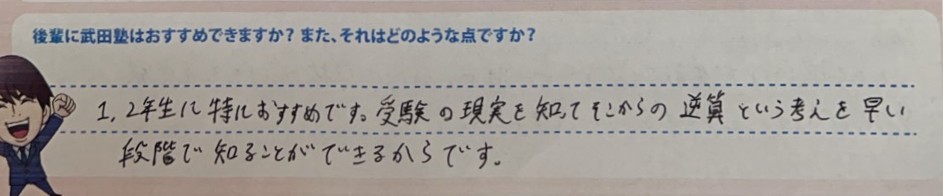 後輩に武田塾はおすすめできますか？また、それはどのような点ですか？
1，2年生に特におすすめです。受験の現実を知ってそこからの逆算という考えを早い
段階で知ることができるからです。